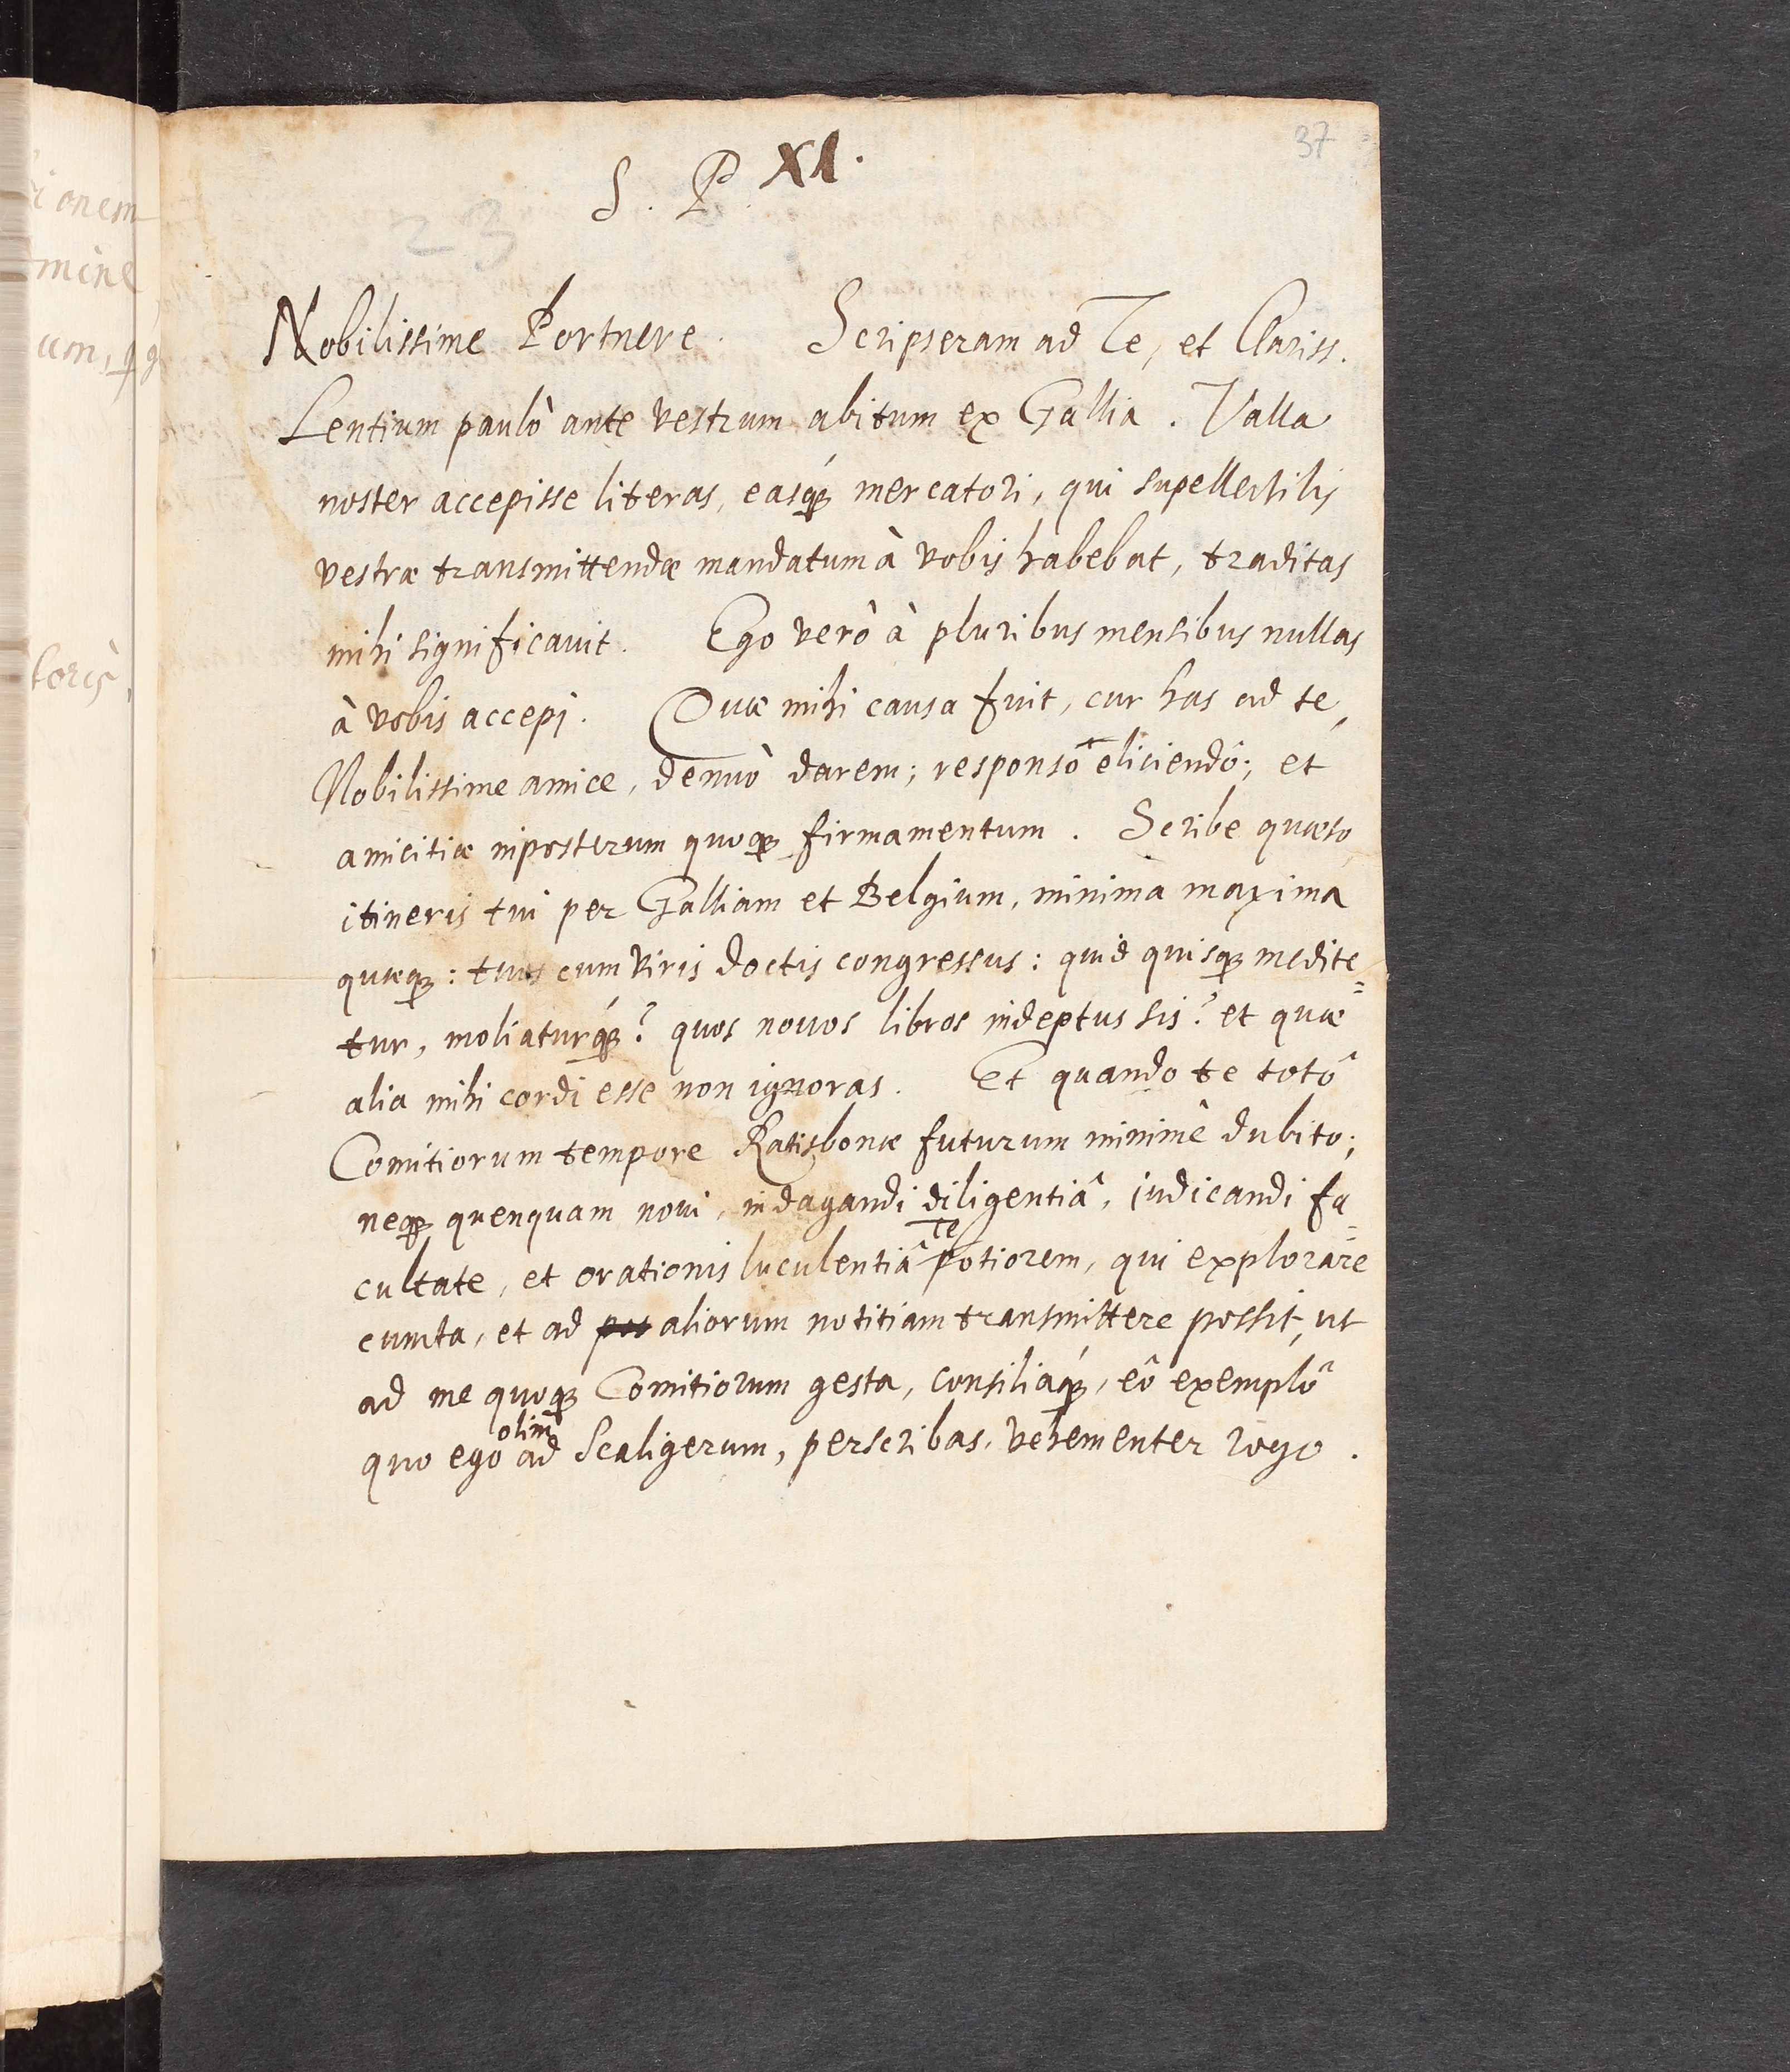 37
XI.
S. P.
23
Nobilissime Portnere. Scripseram ad Te, et Clariss.
Lentium paulò ante vestrum abitum ex Gallia. Valla
noster accepisse literas, easq́ue mercatori, qui supellectilis
vestræ transmittendæ mandatum à vobis habebat, traditas
mihi significavit. Ego verò à pluribus mensibus nullas
à vobis accepi. Quæ mihi causa fuit, cur has ad te,
Nobilissime amice, denuò darem; responsô eliciendô; et
amicitiæ inposterum quoque firmamentum. Scribe quæso
itineris tui per Galliam et Belgium, minima maxima
quæque: tuos cum viris doctis congressus: quid quisque medite=
tur, moliaturq́ue? quos novos libros indeptus sis? et quæ
alia mihi cordi esse non ignoras. Et quando te totô
Comitiorum tempore Ratisbonæ futurum minimè dubito;
neque quenquam novi, indagandi diligentiâ, iudicandi fa=
cultate, et orationis luculentiâ Te potiorem, qui explorare
cuncta, et ad aliorum notitiam transmittere possit, ut
ad me quoque Comitiorum gesta, consiliaq́ue, eô exemplô
quo ego olim ad Scaligerum, perscribas, vehementer rogo.
ionem
mine
um,
toris,